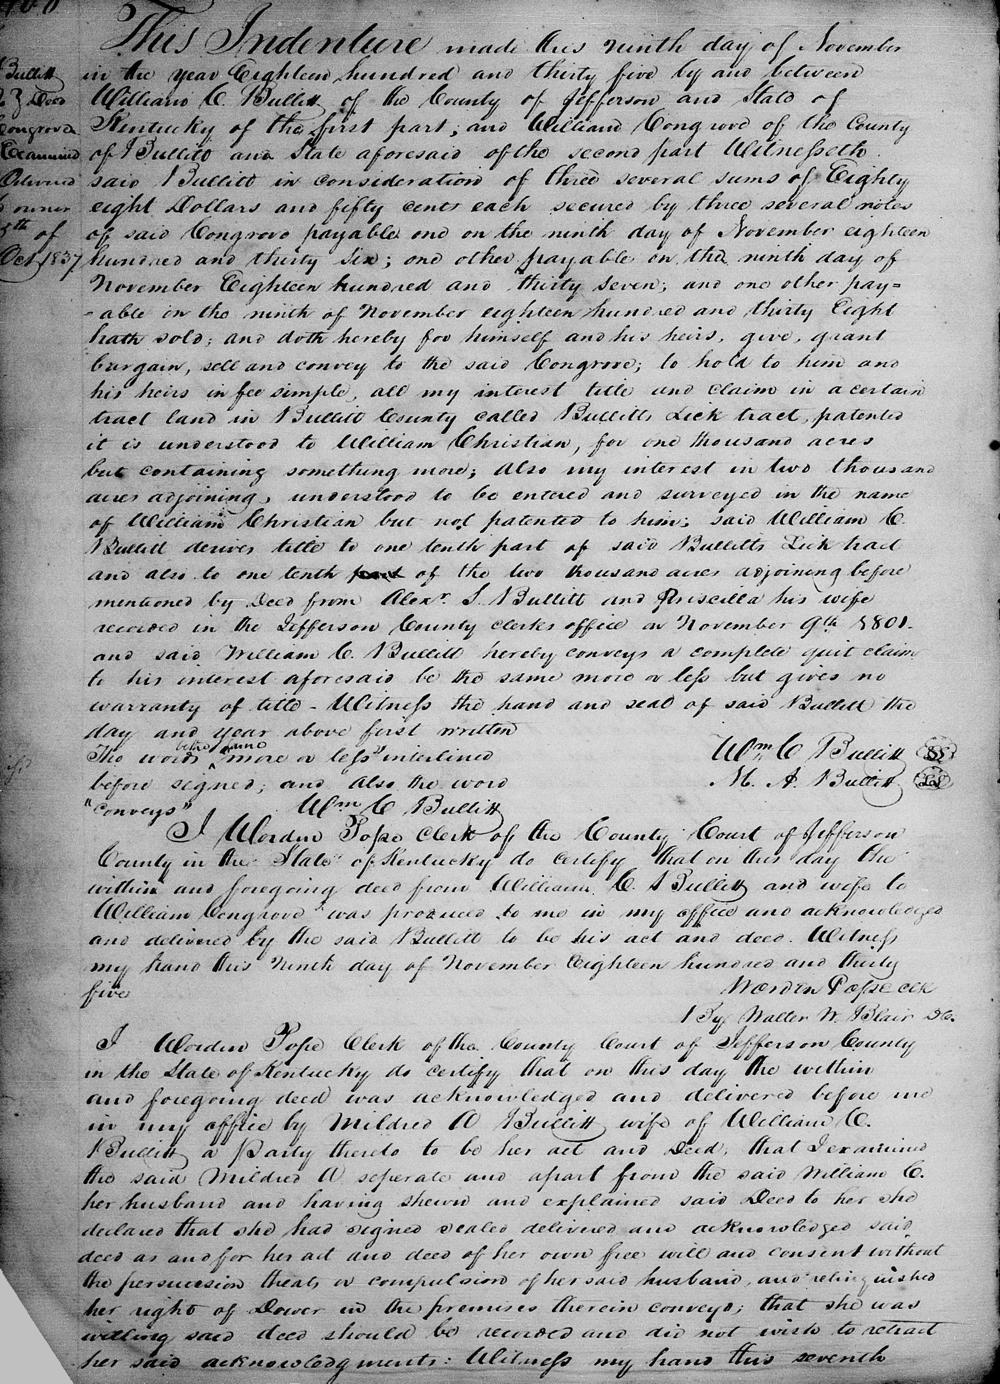 Bullitt
To } Deed
Congrove
Examined
Delivered
to owner
5th of
Oct 1837
This Indenture made this ninth day of November
in the year Eighteen hundred and thirty five by and between
William C. Bullitt of the County of Jefferson and State of
Kentucky of the first part; and William Congrove of the County
of Bullitt and State aforesaid of the second part Witnesseth
said Bullitt in consideration of three several sums of Eighty
eight Dollars and fifty cents each secured by three several notes
of said Congrove payable one on the ninth day of November eighteen
hundred and thirty six; one other payable on the ninth day of
November Eighteen hundred and thirty seven; and one other pay=
=able on the ninth of November eighteen hundred and thirty Eight
hath sold; and doth hereby for himself and his heirs, give, grant
bargain, sell and convey to the said Congrove; to hold to him and
his heirs in fee simple, all my interest title and claim in a certain
tract land in Bullitt County called Bullitts Lick tract, patented
it is understood to William Christian, for one thousand acres
but containing something more; also my interest in two thousand
acres adjoining, understood to be entered and surveyed in the name
of William Christian but not patented to him; said William C.
Bullitt derives title to one tenth part of said Bullitts Lick tract
and also to one tenth of the two thousand acres adjoining before
mentioned by Deed from Alexr. S. Bullitt and Priscilla his wife
recorded in the Jefferson County clerks office on November 9th 1801.
and said William C. Bullitt hereby conveys a complete quit claim
to his interest aforesaid be the same more or less but gives no
warranty of title - Witness the hand and seal of said Bullitt the
day and year above first written
The words "be the same more or less" interlined
before signed; and also the word
"conveys" Wm C Bullitt
Wm C Bullitt SS
M. A. Bullitt LS
I Worden Pope Clerk of the County Court of Jefferson
County in the State of Kentucky do certify that on this day the
within and foregoing deed from William C. Bullitt and wife to
William Congrove was produced to me in my office and acknowledged
and delivered by the said Bullitt to be his act and deed. Witness
my hand this Ninth day of November Eighteen hundred and thirty
five
Worden Pope clk
By Walter W. Blair Dc.
I Worden Pope Clerk of the County Court of Jefferson County
in the State of Kentucky do certify that on this day the within
and foregoing deed was acknowledged and delivered before me
in my office by Mildred A Bullitt wife of William C.
Bullitt a Party thereto to be her act and Deed, that I examined
the said Mildred A seperate and apart from the said William C.
her husband and having shewn and explained said Deed to her she
declared that she had signed sealed delivered and acknowledged said
deed as and for her act and deed of her own free will and consent without
the persuasion threats or compulsion of her said husband, and relinquished
her right of Dower in the premises therein conveyd; that she was
willing said deed should be recorded and did not wish to retract
her said acknowledgments: Witness my hand this seventh